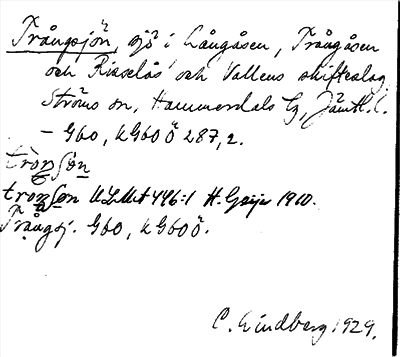 Trångsjön, sjö i Långåsen, Trångåsen
och Risselås och Vallens skifteslag
Ströms sn, Hammerdals tg, Jämtl. l.
– Gbo, LGboÖ 287,2.
tròŋsön
troŋsøn ULMA 446:1 H. Geijer 1910.
Trångsj. Gbo, LGboÖ.
C. Lindberg 1929.